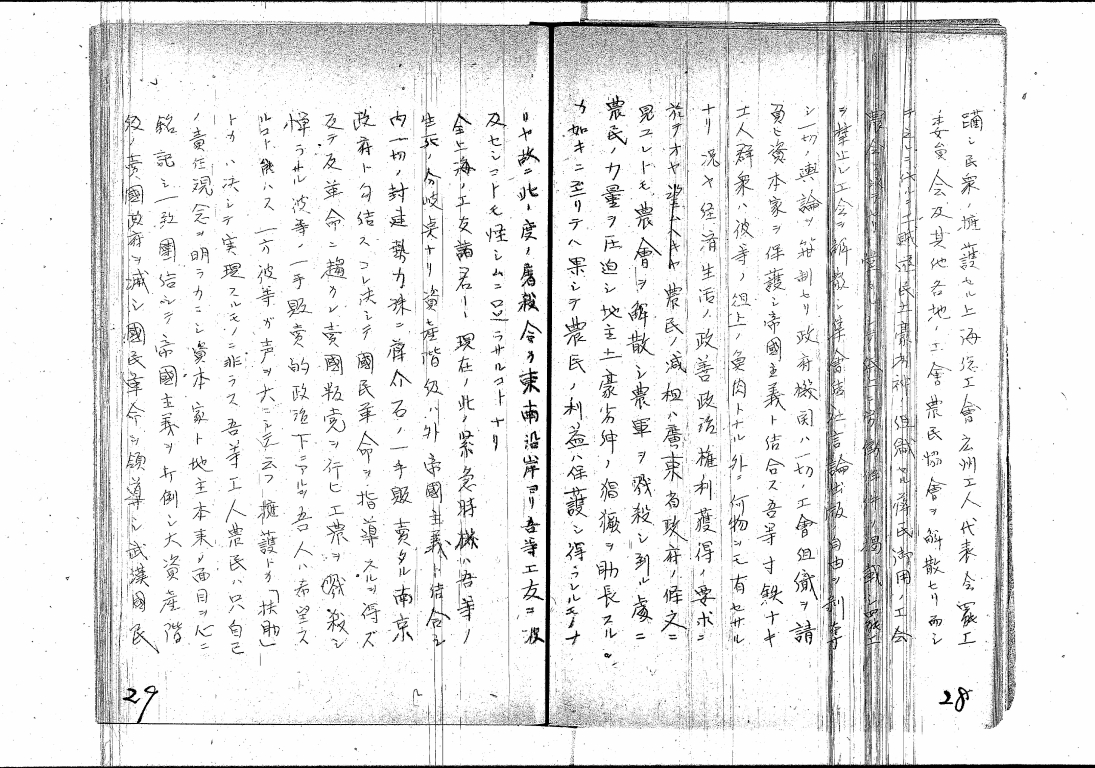 躪シ民衆ノ擁護セル上海総工會広州工人代表会罷工
委員会及其他各地ノ工會農民協會ヲ解散セリ而シ
テ 民土豪劣紳ノ組織セル 民御用ノ工会
農会
ヲ禁止シ工会ヲ解散シ集會結社言論出版ノ自由ヲ剥奪
シ一切ノ輿論ヲ箝制セリ政府機関ハ一切ノ工會組織ヲ請
負ヒ資本家ヲ保護シ帝國主義ト結合ス吾等寸鉄ナキ
工人群衆ハ彼等ノ俎上ノ魚肉トナル外ニ何物ヲモ有セサル
ナリ 況ヤ経済生活ノ改善政治権利獲得ノ要求ニ
於テオヤ 農民ノ減租ハ廣東省政府ノ條文ニ
見ユレドモ農會ヲ解散シ農軍ヲ戮殺シ到ル處ニ
農民ノ力量ヲ圧迫シ地主土豪劣紳ノ猖獗ヲ助長スル
カ如キニ至リテハ果シテ農民ノ利益ハ保護シ得ラルルモノナ
28
リヤ故ニ此ノ度ノ屠殺令カ東南沿岸ヨリ吾等工友ニ波
及センコトモ怪シムニ足ラサルコトナリ
全上海ノ工友諸君ー現在ノ此ノ緊急時機ハ吾等ノ
生死ノ分岐点ナリ資産階級ハ外帝國主義ト結合シ
内一切ノ封建勢力殊ニ蒋介石ノ一手販賣タル南京
政府ト勾結スコレ決シテ國民革命ヲ指導スルヲ得ズ
反テ反革命ニ趨クレ賣國販党ヲ行ヒ工農ヲ戮殺シ
憚ラサル彼等ノ一手販売的政治下ニアルヲ吾人ハ希望ス
ルコト能ハス 一方彼等ガ声ヲ大ニシテ云フ擁護トカ「扶助」
トカハ決シテ実現スルモノニ非ラス吾等工人農民ハ只自己
ノ責任現念ヲ明ラカニシ資本家ト地主本来ノ面目ヲ心ニ
銘記シ一致團結シテ帝國主義ヲ打倒シ大資産階
級ノ賣國政府ヲ滅シ國民革命ヲ領導シ武漢國民
29